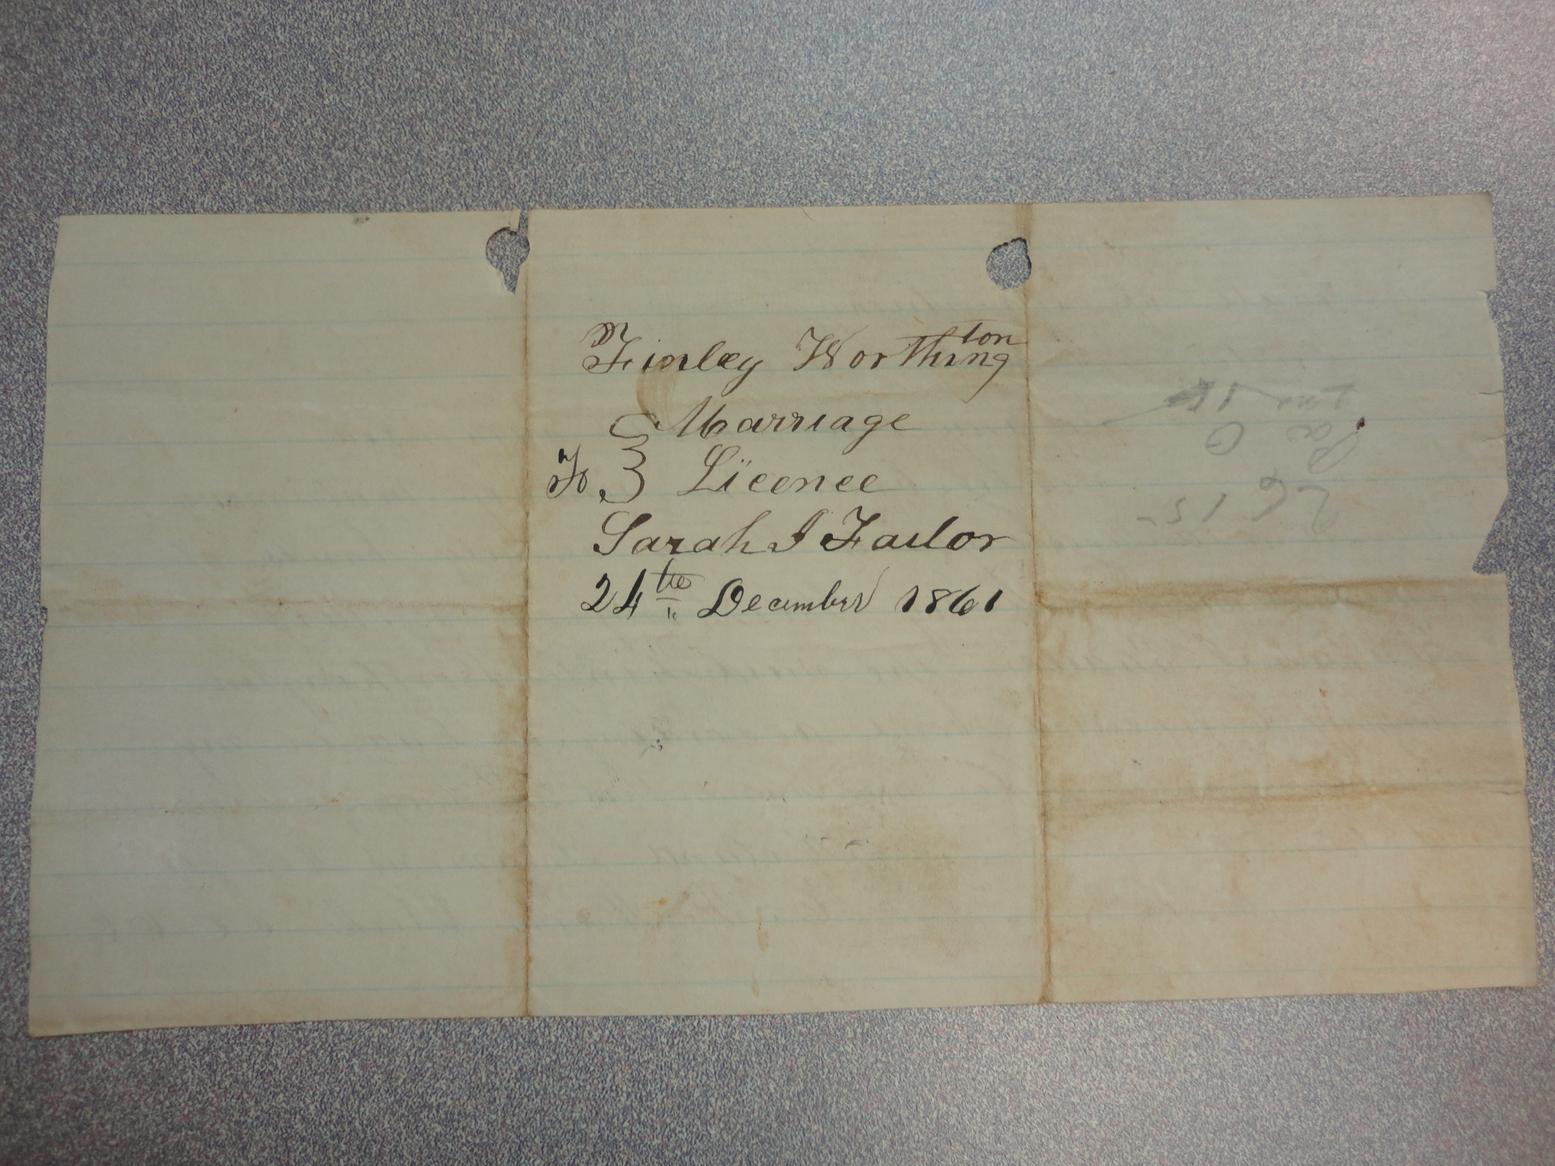 Finley Worthington
Marriage
To Licence
Sarah J Failor
24th December 1861
26 15